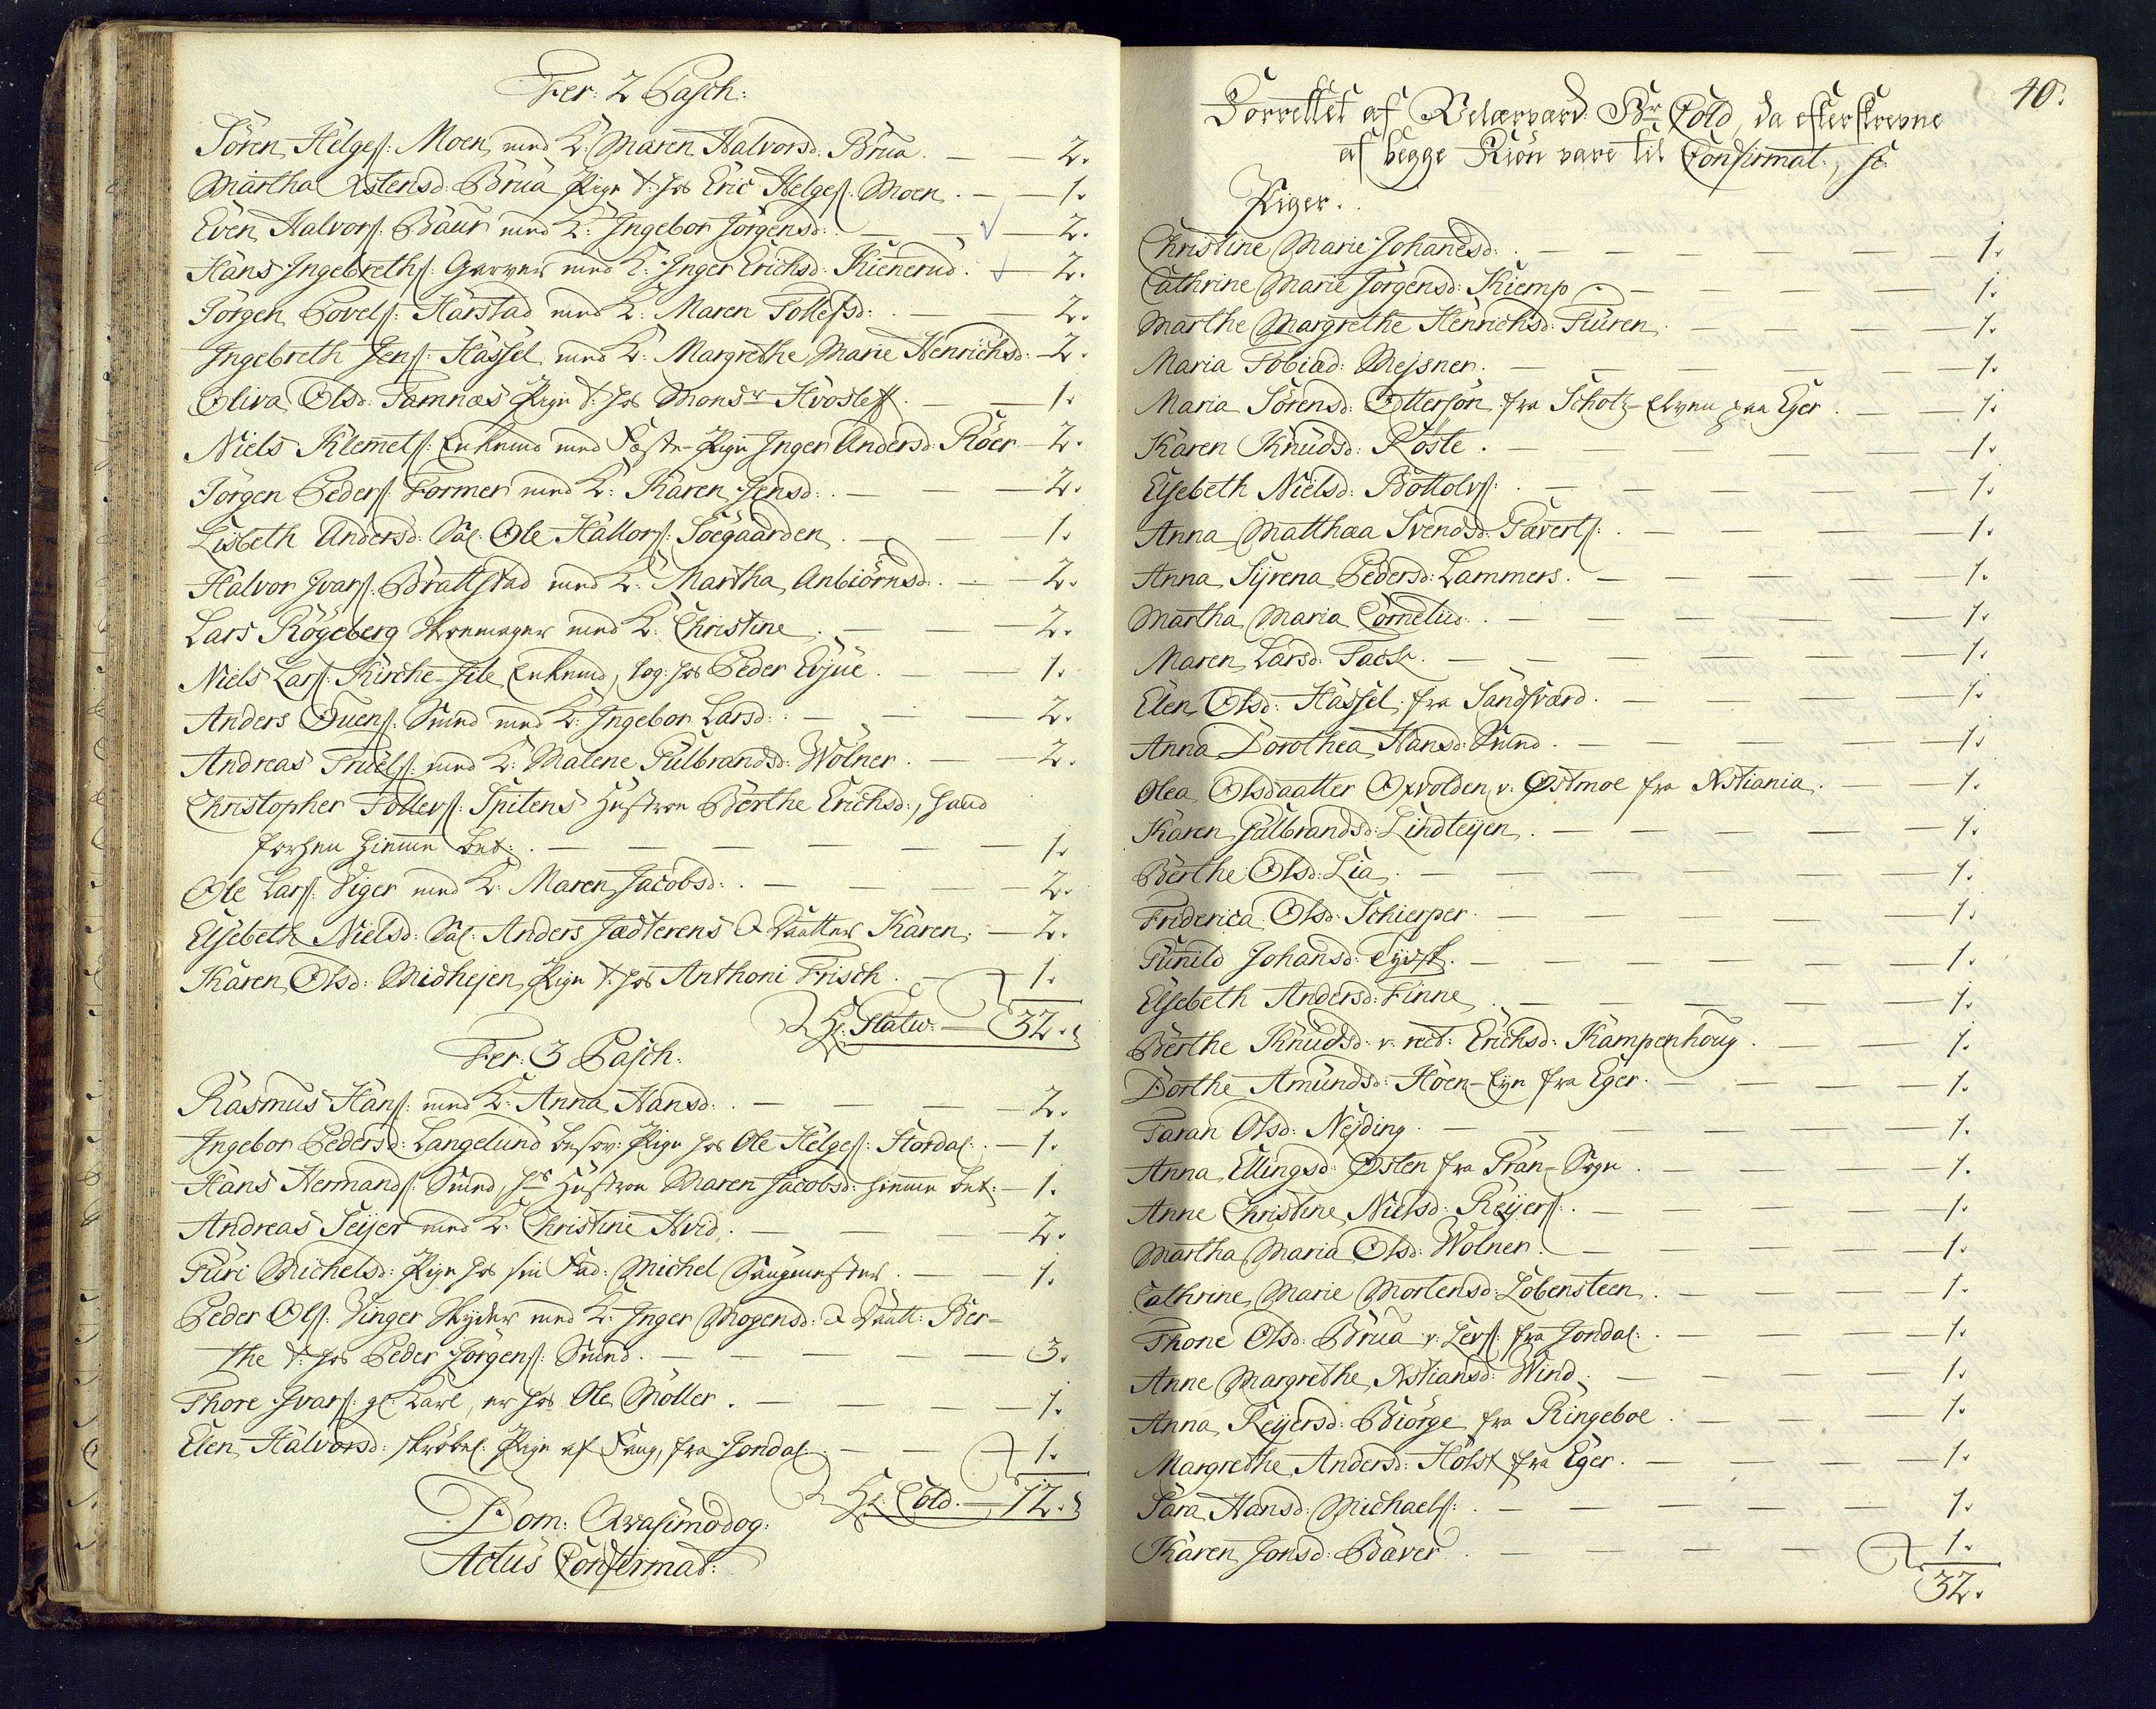 Fer: 2 Pasch:
Sören Helges: Moen med K: Maren Halvorsd: Brua. — — 2.
Martha Xstensd: Brua Pige t: hos Eric Helges: Moen. — 1.
Even Halvors: Baur med K: Ingebor Jörgensd: — — 2.
Hans Ingebreths: Garver med K: Inger Erichsd: Kienerud. — 2.
Jörgen Povels: Harstad med K: Maren Tollefsd: — — 2.
Ingebreth Jens: Hassel med K: Margrethe Marie Henrichsd: — 2.
Oliva Olsd: Tamnæs Pige t: hos Monsr Hvosleff. — — 1.
Niels Klemets: Enkemd med Fæste-Pige Inger Andersd: Röer — 2.
Jörgen Peders: Former med K: Karen Jensd: — — 2.
Lisbeth Andersd: Sal: Ole Hallors: Söegaarden. — — 1.
Halvor Ivars: Brattstad med K: Martha Anbiörnsd. — — 2.
Lars Rögeberg Skoemager med K: Christine. — — 2.
Niels Lars: Kirche-Jile Enkemd, log: hos Peder Evjue. — 1.
Anders Ouens: Smed med K: Ingebor Larsd: — — 2.
Andreas Truels: med K: Malene Gulbrandsd: Wölner. — — 2.
Christopher Tollevs: Spitens Hustroe Berthe Erichsd:, hand
forhen hiemme bet: — — — — — 1.
Ole Lars: Viger med K: Maren Jacobsd: — — — 2.
Elsebeth Nielsd: Sal: Anders Jædterens & Daatter Karen. — 2.
Karen Olsd: Midhejen Pige t: hos Anthoni Frisch. — 1.
Hr: Statw. — 32.
Fer: 3 Pasch:
Rasmus Hans: med K: Anna Hansd: — — — 2.
Ingebor Pedersd: Langelund besov: Pige hos Ole Helges: Stordal: — 1.
Hans Hermands: Smed, hs Hustroe Maren Jacobsd: hiemme bet: — 1.
Andreas Seijer med K: Christine Hvid. — — — 2.
Guri Michelsd: Pige hos sin Fad: Michel Saugmester. — — 1.
Peder Ols: Vinger Skyder med K: Inger Mogensd: & Daatt: Ber-
the t: hos Peder Jörgens: Smed. — — — — 3.
Thore Ivars: gl: Karl, er hos Ole Möller. — — — 1.
Elen Halvorsd: skröbel: Pige af Saug, fra Jondal: — 1.
Hr: Cold. — 12.
Dom: Qvasimodog:
Actus Confirmat:
40.
Forrettet af Velærværd: Hr Cold, da efterskrevne
af begge Kiön vare til Confirmat:, sc:
Piger.
Christine Marie Johanesd: — 1.
Cathrine Marie Jörgensd: Kiemp — 1.
Marthe Margrethe Henrichsd: Furen. — 1.
Maria Tobiæd: Mejsner. — 1.
Maria Sörensd: Otterson fra Schotz-Elven paa Eger. — 1.
Karen Knudsd: Roste. — 1.
Elsebeth Nielsd: Bottolvs: — 1.
Anna Matthæa Svendsd: Taverts: — 1.
Anna Syrena Pedersd: Lammers. — 1.
Martha Maria Corneliid: — 1.
Maren Larsd: — 1.
Elen Olsd: Hassel fra Sandsværd. — 1.
Anna Dorothea Hansd: Smed. — 1.
Olea Olsdaatter Opvolden v. Østmoe fra Xstiania. — 1.
Karen Gulbrandsd: Lindteijen. — 1.
Berthe Olsd: Lia. — 1.
Friderica Olsd: Schierper. — 1.
Gunild Johansd: Tydsk. — 1.
Elsebeth Andersd: Finne. — 1.
Berthe Knudsd: v. rect: Erichsd: Kampenhoug. — 1.
Dorthe Amundsd: Höen-Eyn fra Eger. — 1.
Taran Olsd: Nejding. — 1.
Anna Ellingsd: Østen fra Gran-Sogn. — 1.
Anne Christine Nielsd: Reijers: — 1.
Martha Maria Olsd: Wolner. — 1.
Cathrine Marie Mortensd: Lobensteen. — 1.
Thone Olsd: Brua v. Levs: fra Jondal: — 1.
Anne Margrethe Xstiansd: Wind. — 1.
Anna Reijersd: Biörge fra Ringeboe. — 1.
Margrethe Andersd: Holst fra Eger. — 1.
Sara Hansd: Michaels: — 1.
Karen Jonsd: Baver. — 1.
32.